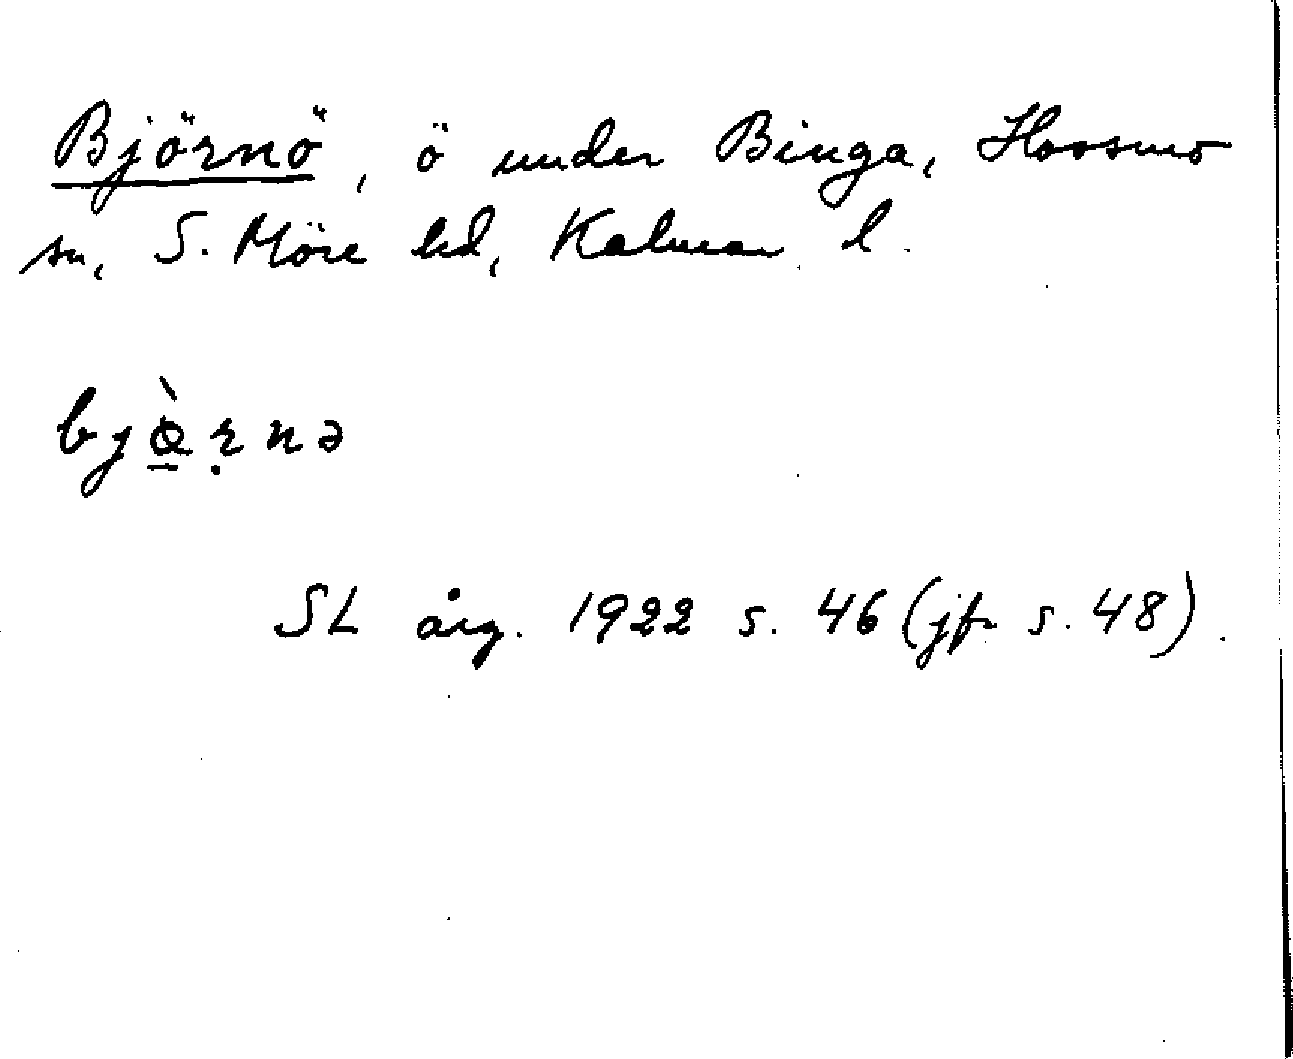 Björnö, ö under Binga, Hossmo
sn, S. Möre hd, Kalmar l.
bjö̱̀ṛnə
SL årg. 1922 s. 46 (jfr s. 48).